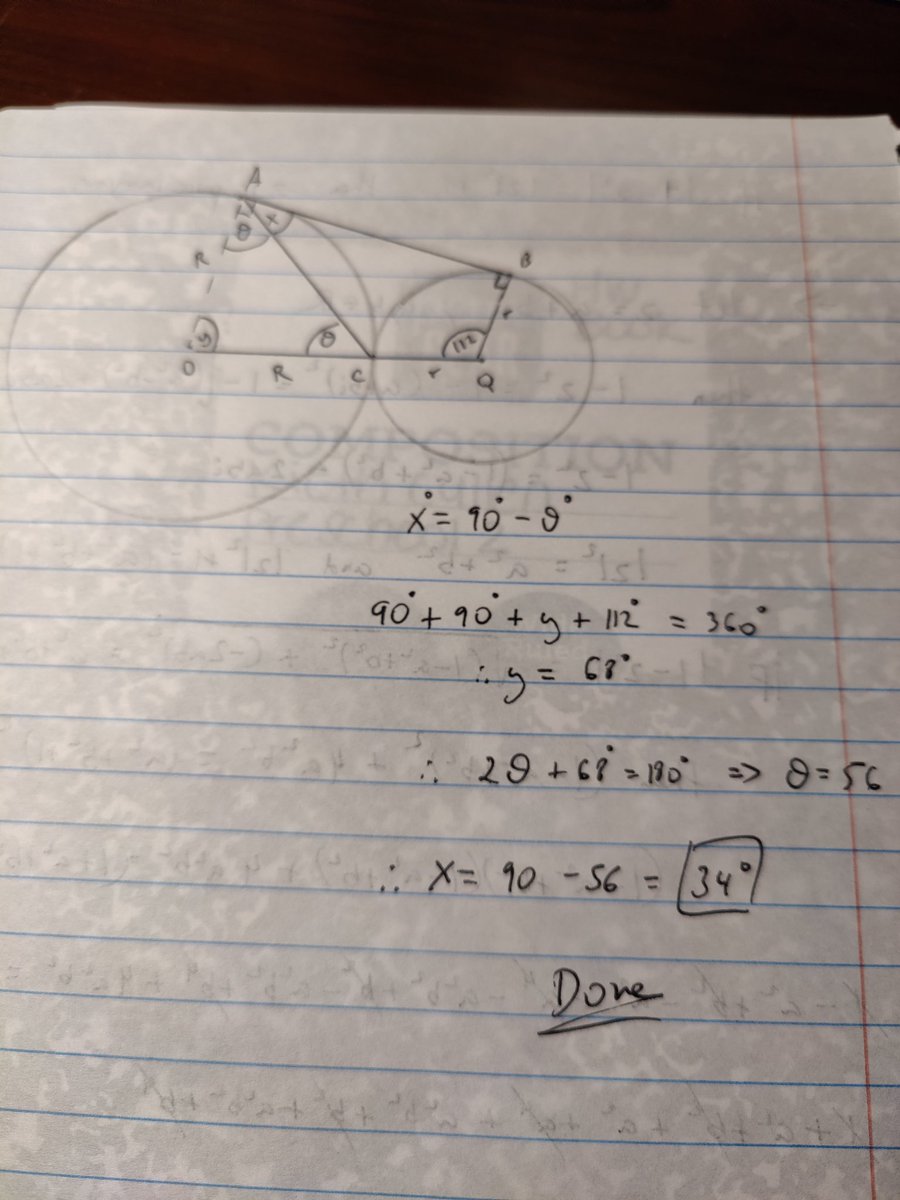 A
θ x
R
B
r
y
θ
112
O
R
C
r
Q
x° = 90° - θ°
90° + 90° + y + 112° = 360°
∴ y = 68°
∴ 2θ + 68° = 180° => θ = 56
∴ x = 90 - 56 = 34°
Done